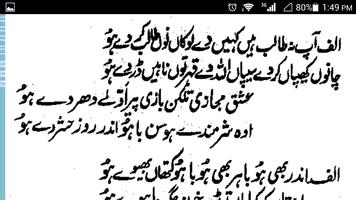 3G 80% 1:49 PM
الف آپ نہ طالب ہیں کہیں دے لوکاں نوں طالب کر دے ہو
چانوں کھیپاں کر دے سیپاں اللہ دے قہر توں ناہیں ڈر دے ہو
عشق مجازی تلکن بازی پیر اوّلے دھر دے ہو
اوہ شرمندے ہوسن باہو اندر روز حشر دے ہو
الف اندر بھی ہو باہر بھی ہو باہو کتھاں لبھیوے ہو